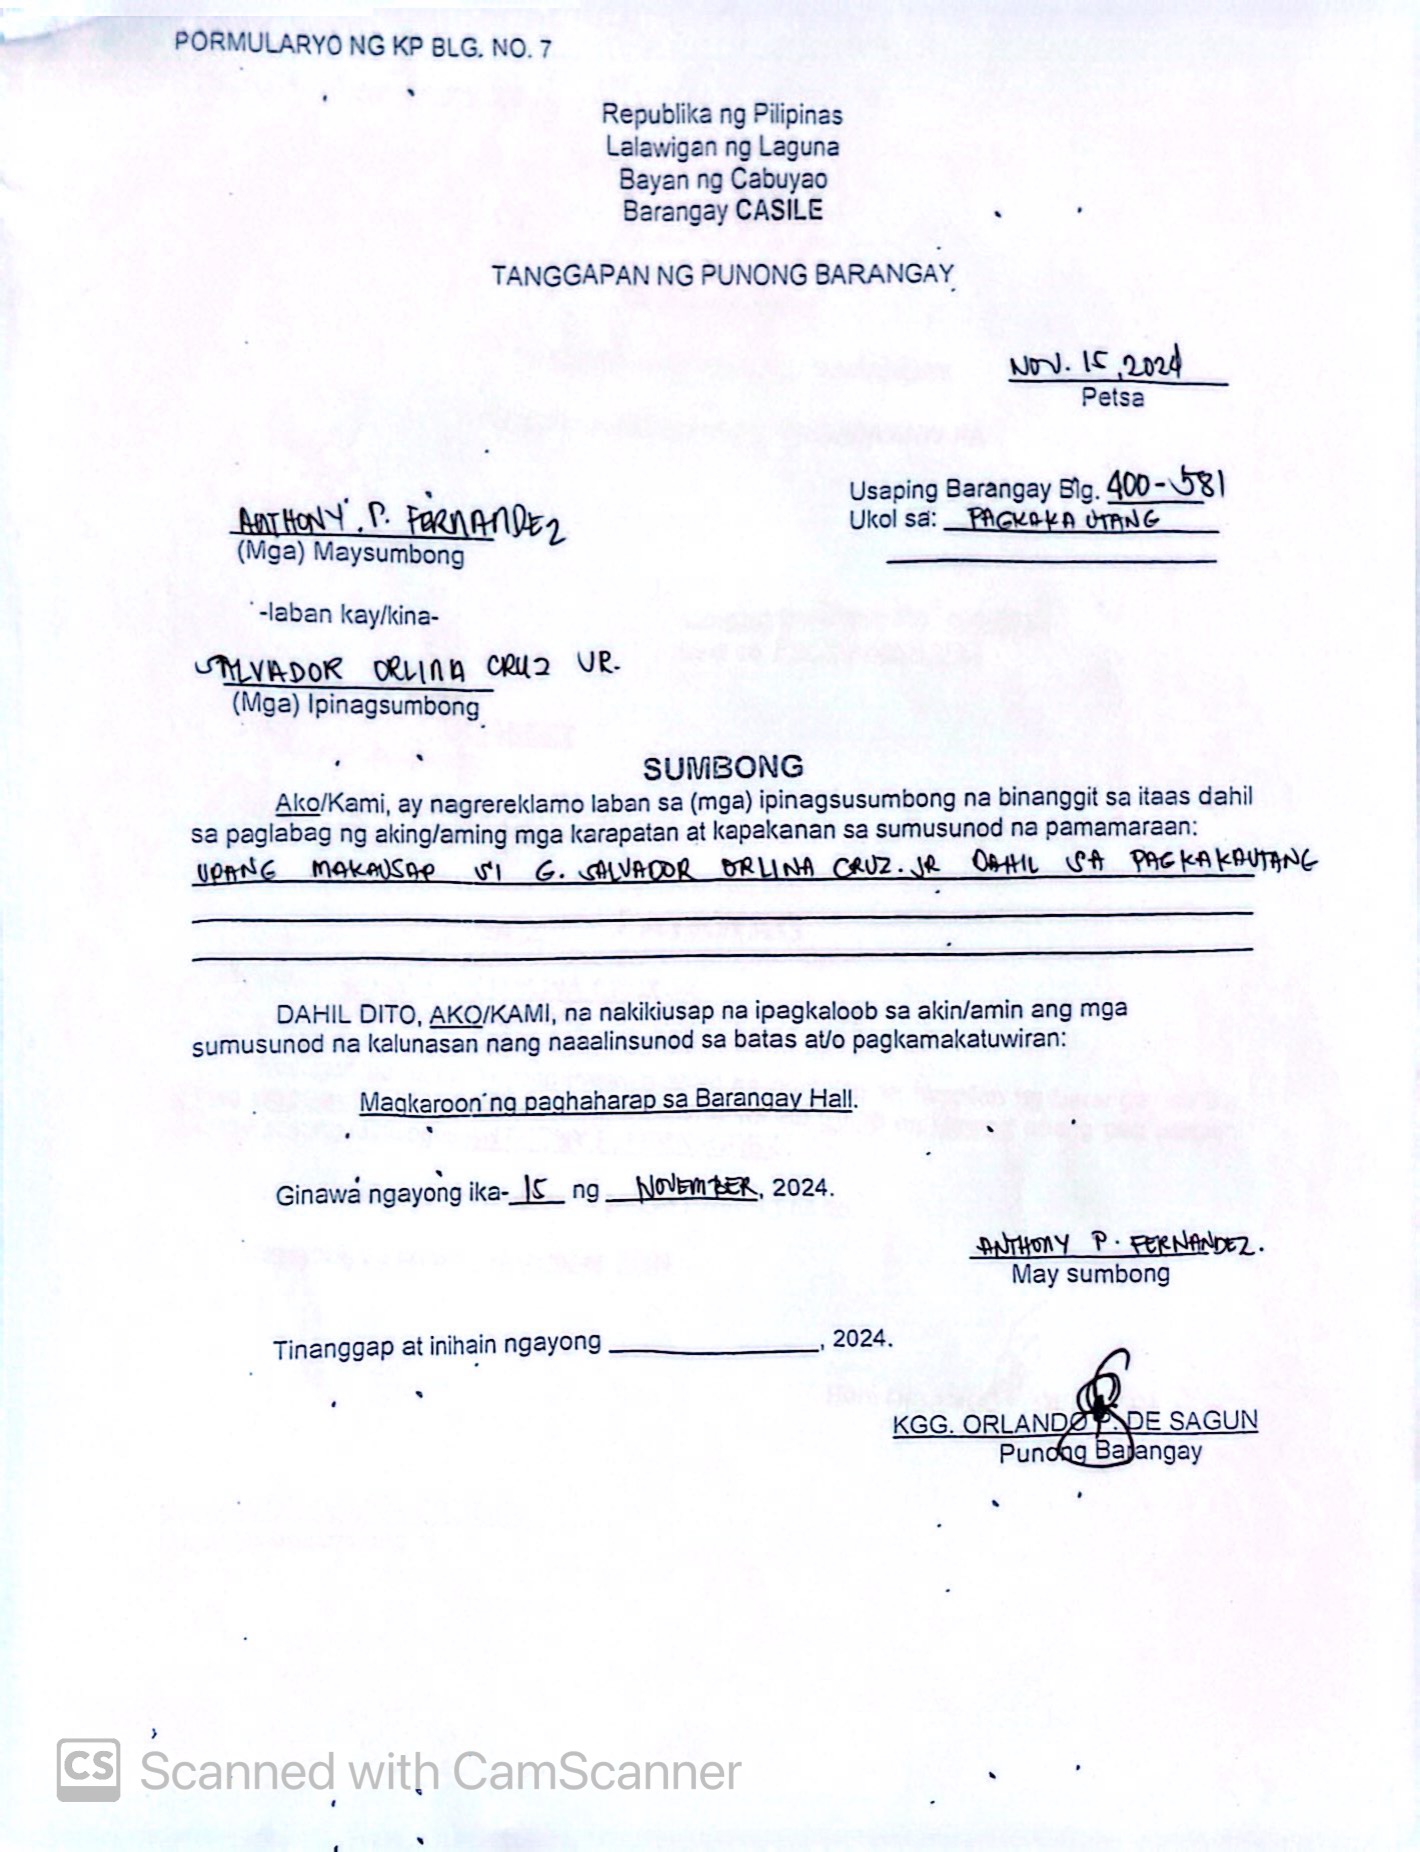 PORMULARYO NG KP BLG. NO. 7
Republika ng Pilipinas
Lalawigan ng Laguna
Bayan ng Cabuyao
Barangay CASILE
TANGGAPAN NG PUNONG BARANGAY
NOV. 15, 2024
Petsa
Usaping Barangay Blg. 400-581
Ukol sa: PAGKAKAUTANG
ANTHONY P. FERNANDEZ
(Mga) Maysumbong
-laban kay/kina-
SALVADOR ORLINA CRUZ JR.
(Mga) Ipinagsumbong
SUMBONG
Ako/Kami, ay nagrereklamo laban sa (mga) ipinagsusumbong na binanggit sa itaas dahil
sa paglabag ng aking/aming mga karapatan at kapakanan sa sumusunod na pamamaraan:
UPANG MAKAUSAP SI G. SALVADOR ORLINA CRUZ. JR DAHIL SA PAGKAKAUTANG
DAHIL DITO, AKO/KAMI, na nakikiusap na ipagkaloob sa akin/amin ang mga
sumusunod na kalunasan nang naaalinsunod sa batas at/o pagkamakatuwiran:
Magkaroon ng paghaharap sa Barangay Hall.
Ginawa ngayong ika- 15 ng NOVEMBER, 2024.
ANTHONY P. FERNANDEZ.
May sumbong
Tinanggap at inihain ngayong ____________, 2024.
KGG. ORLANDO P. DE SAGUN
Punong Barangay
CS Scanned with CamScanner